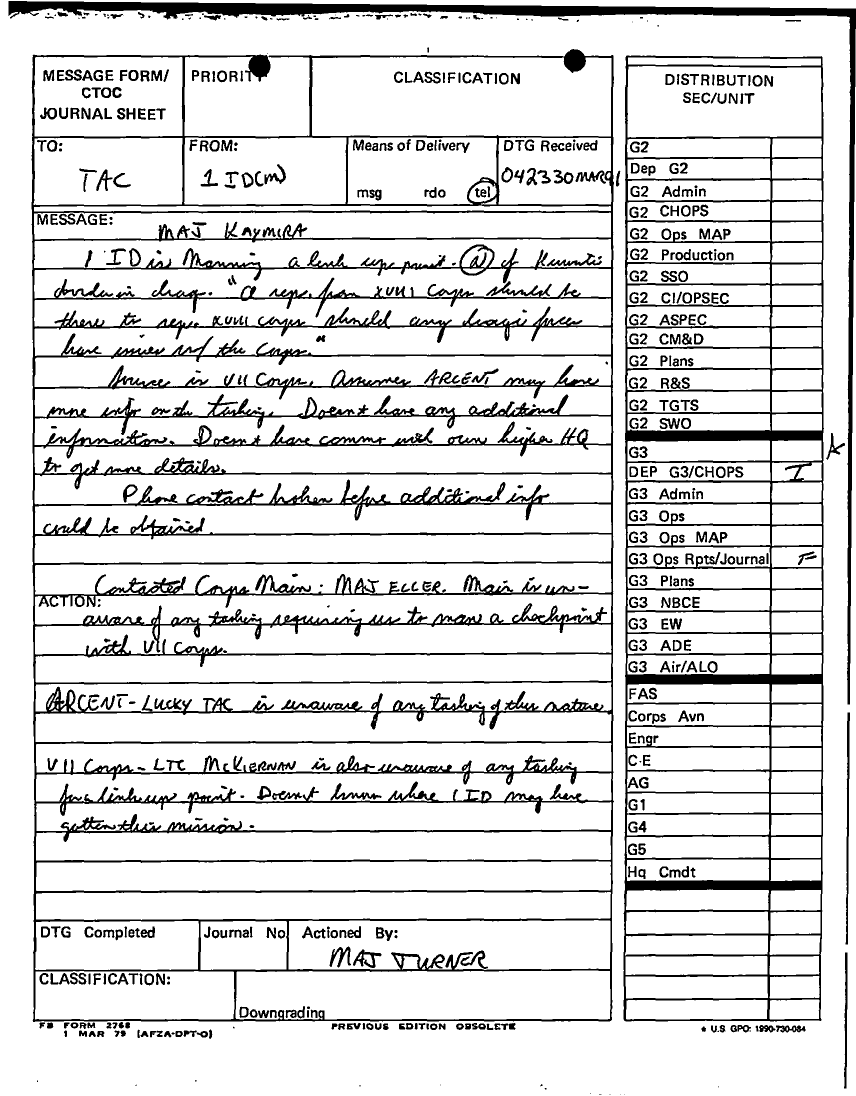 MESSAGE FORM/
CTOC
JOURNAL SHEET
PRIORITY
CLASSIFICATION
TO:
TAC
FROM:
1 ID(M)
Means of Delivery
msg rdo tel
DTG Received
042330MAR91
MESSAGE:
MAJ KAYMIRA
1 ID is Manning a link up point. @ of Kuwaiti
border in Iraq. "A rep. from XVIII Corps should be
there to rep. XVIII Corps should any Iraqi forces
have issues w/ the Corps."
Source is VII Corps. Assumes ARCENT may have
more info on the tasking. Doesn't have any additional
information. Doesn't have comms with own higher HQ
to get more details.
Phone contact broken before additional info
could be obtained.
Contacted Corps Main: MAJ ELLER. Main is un-
ACTION:
aware of any tasking requiring us to man a checkpoint
with VII Corps.
ARCENT - LUCKY TAC is unaware of any tasking of this nature.
VII Corps - LTC McKIERNAN is also unaware of any tasking
for a link up point. Doesn't know where 1 ID may have
gotten this mission.
DTG Completed
Journal No
Actioned By:
MAJ TURNER
CLASSIFICATION:
Downgrading
FB FORM 2768
1 MAR 79 (AFZA-DPT-O)
PREVIOUS EDITION OBSOLETE
DISTRIBUTION
SEC/UNIT
G2
Dep G2
G2 Admin
G2 CHOPS
G2 Ops MAP
G2 Production
G2 SSO
G2 CI/OPSEC
G2 ASPEC
G2 CM&D
G2 Plans
G2 R&S
G2 TGTS
G2 SWO
G3
DEP G3/CHOPS I
G3 Admin
G3 Ops
G3 Ops MAP
G3 Ops Rpts/Journal F
G3 Plans
G3 NBCE
G3 EW
G3 ADE
G3 Air/ALO
FAS
Corps Avn
Engr
C-E
AG
G1
G4
G5
Hq Cmdt
* U.S GPO: 1990-730-084